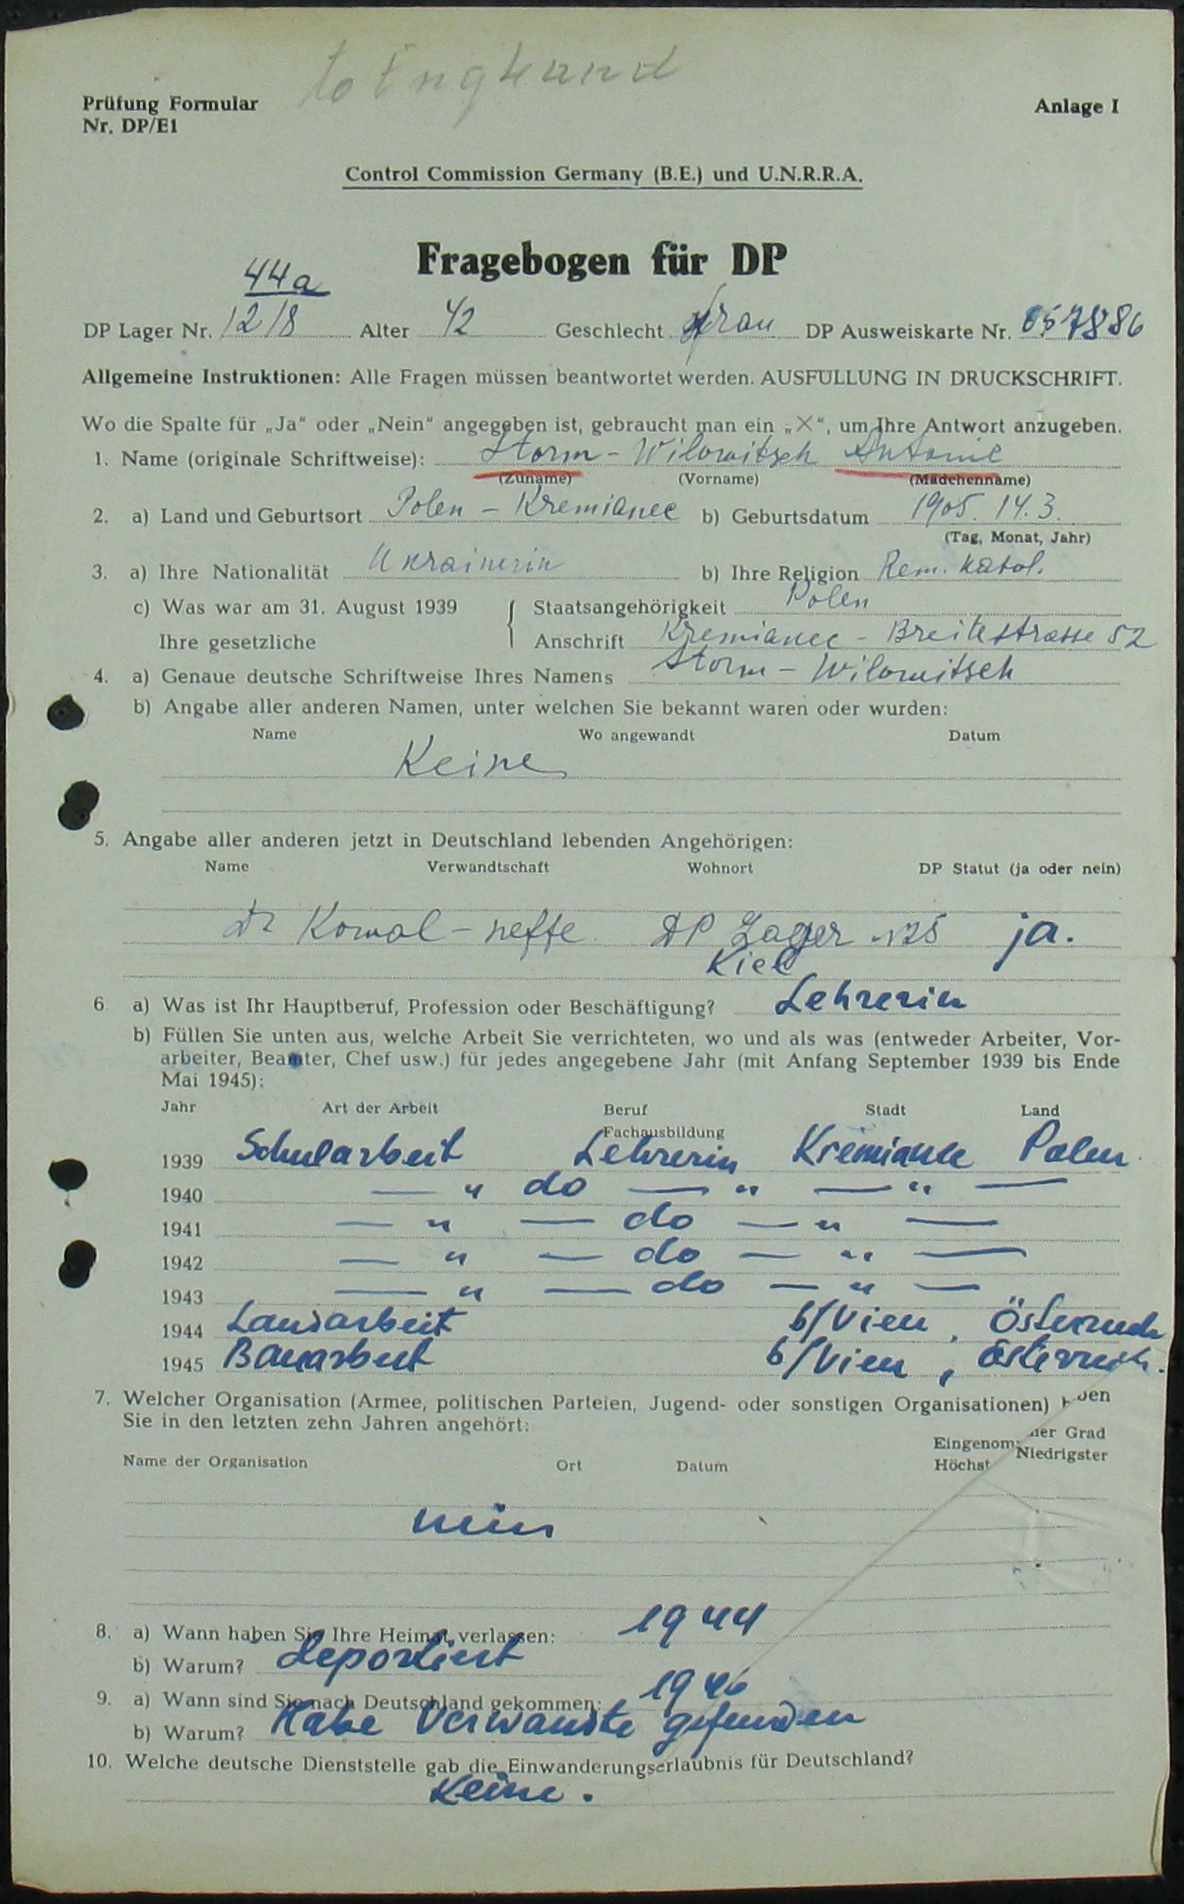 to England
Prüfung Formular
Nr. DP/E1
Anlage I
Control Commission Germany (B.E.) und U.N.R.R.A.
Fragebogen für DP
44a
DP Lager Nr. 12/8 Alter 42 Geschlecht frau DP Ausweiskarte Nr. 057886
Allgemeine Instruktionen: Alle Fragen müssen beantwortet werden. AUSFÜLLUNG IN DRUCKSCHRIFT.
Wo die Spalte für „Ja“ oder „Nein“ angegeben ist, gebraucht man ein „X“, um Ihre Antwort anzugeben.
1. Name (originale Schriftweise): Storm - Wilowitsch Antonie
(Zuname) (Vorname) (Mädchenname)
2. a) Land und Geburtsort Polen - Kremianec b) Geburtsdatum 1905. 14. 3.
(Tag, Monat, Jahr)
3. a) Ihre Nationalität Ukrainerin b) Ihre Religion Rem. Katol.
c) Was war am 31. August 1939 Staatsangehörigkeit Polen
Ihre gesetzliche Anschrift Kremianec - Breitestrasse 52
4. a) Genaue deutsche Schriftweise Ihres Namens Storm - Wilowitsch
b) Angabe aller anderen Namen, unter welchen Sie bekannt waren oder wurden:
Name Wo angewandt Datum
Keine
5. Angabe aller anderen jetzt in Deutschland lebenden Angehörigen:
Name Verwandtschaft Wohnort DP Statut (ja oder nein)
Dr Kowal - neffe. DP Lager 125 ja.
Kiel
6 a) Was ist Ihr Hauptberuf, Profession oder Beschäftigung? Lehrerin
b) Füllen Sie unten aus, welche Arbeit Sie verrichteten, wo und als was (entweder Arbeiter, Vor-
arbeiter, Beamter, Chef usw.) für jedes angegebene Jahr (mit Anfang September 1939 bis Ende
Mai 1945):
Jahr Art der Arbeit Beruf Stadt Land
Fachausbildung
1939 Schularbeit Lehrerin Kremianec Polen
1940 — " do — " — " —
1941 — " — do — " —
1942 — " — do — " —
1943 — " — do — " —
1944 Landarbeit b/Vien, Österreich
1945 Bauarbeit b/Vien, Österreich.
7. Welcher Organisation (Armee, politischen Parteien, Jugend- oder sonstigen Organisationen) ben
Sie in den letzten zehn Jahren angehört:
Eingenom ner Grad
Name der Organisation Ort Datum Höchst Niedrigster
nein
8. a) Wann haben Sie Ihre Heimat verlassen: 1944
b) Warum? deportiert
9. a) Wann sind Sie nach Deutschland gekommen: 1946
b) Warum? Habe Verwandte gefunden
10. Welche deutsche Dienststelle gab die Einwanderungserlaubnis für Deutschland?
Keine.